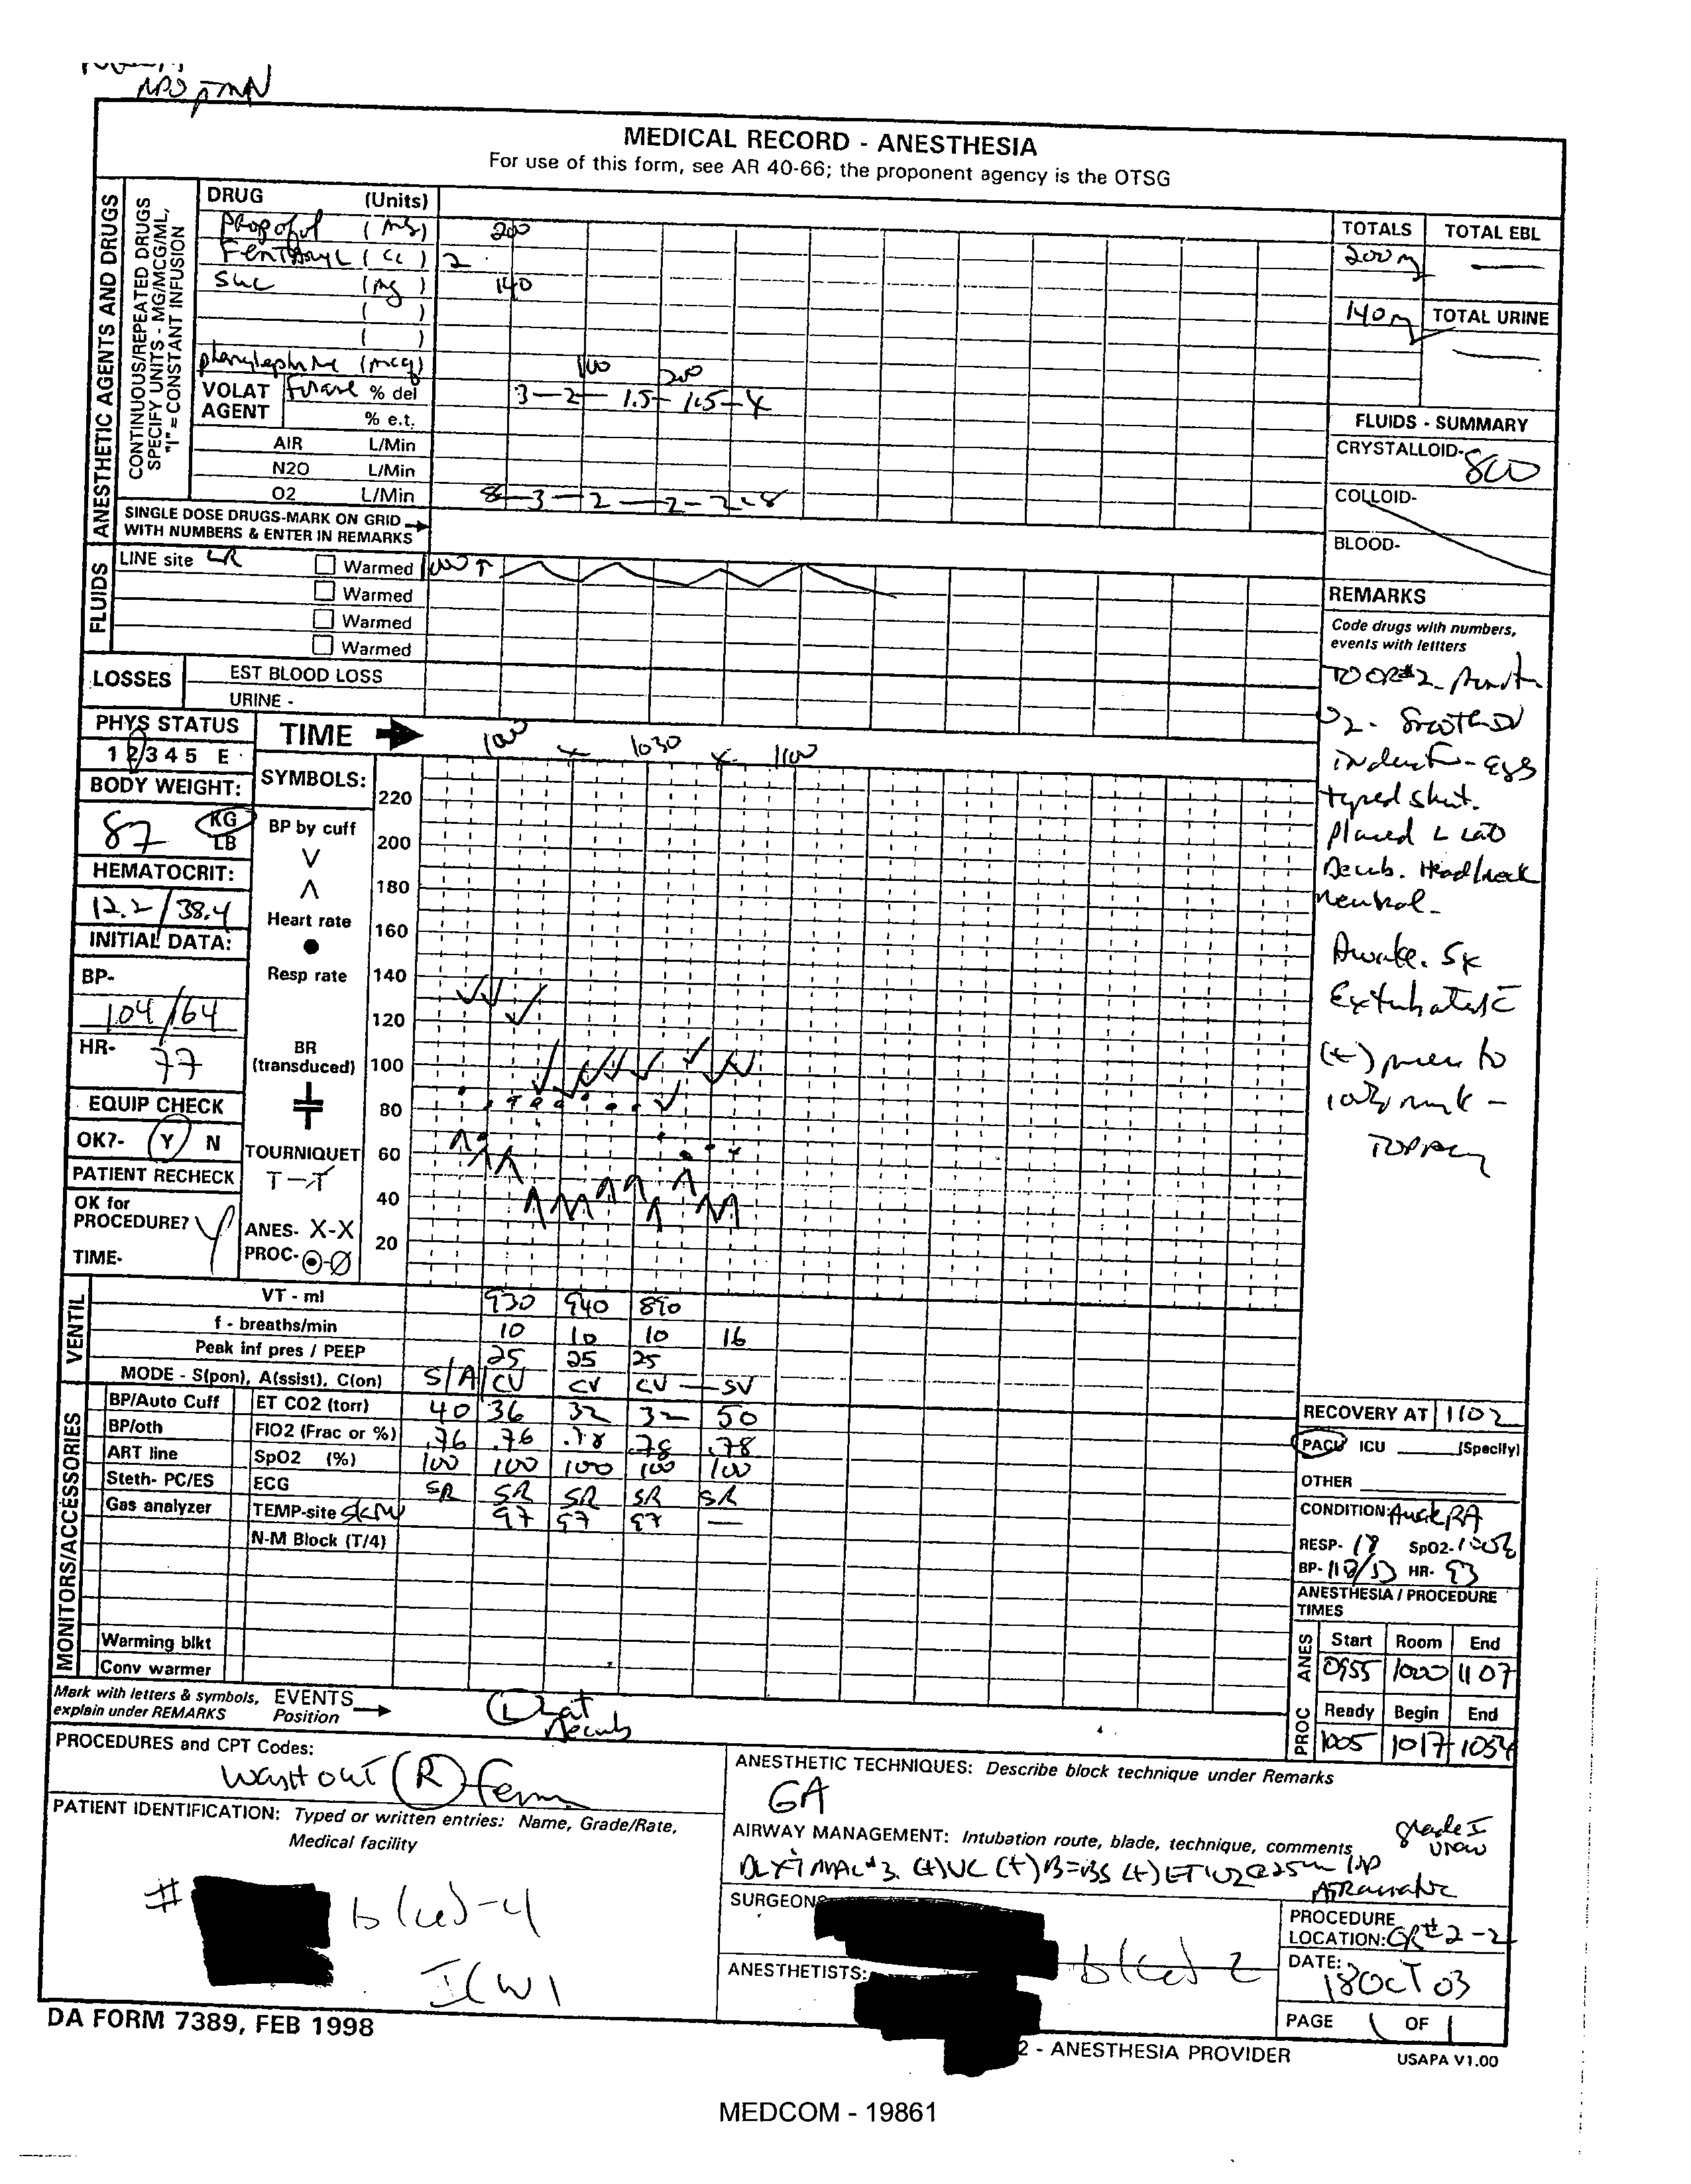 NPO pMN
MEDICAL RECORD - ANESTHESIA
For use of this form, see AR 40-66; the proponent agency is the OTSG
ANESTHETIC AGENTS AND DRUGS
CONTINUOUS/REPEATED DRUGS
SPECIFY UNITS - MG/MCG/ML,
"I" = CONSTANT INFUSION
DRUG (Units)
Propofol (mg) 200
Fentanyl (cc) 2
Suc (mg) 140
( )
( )
phenylephrine (mcg) 100 200
VOLAT AGENT Forane % del 3 - 2 - 1.5 - 1.5 - 4
% e.t.
AIR L/Min
N2O L/Min
O2 L/Min 8 - 3 - 2 - 2 - 2 - 8
SINGLE DOSE DRUGS-MARK ON GRID
WITH NUMBERS & ENTER IN REMARKS
TOTALS TOTAL EBL
200 mg —
140 mg TOTAL URINE
—
FLUIDS - SUMMARY
CRYSTALLOID- 800
COLLOID-
BLOOD-
FLUIDS
LINE site LR Warmed 1000 ↑
Warmed
Warmed
Warmed
LOSSES
EST BLOOD LOSS
URINE -
REMARKS
Code drugs with numbers,
events with lettters
TO OR#2 -
O2 - Smooth IV
induct - eyes
taped shut.
Placed L LAT
Decub. Head/neck
neutral -
Awake. Sx
Extubated c̄
(+) pressure to
100% mask -
TO PACU
PHYS STATUS
1 2 3 4 5 E
BODY WEIGHT:
87 KG
LB
HEMATOCRIT:
12.2/38.4
INITIAL DATA:
BP-
104/64
HR- 77
EQUIP CHECK
OK?- Y N
PATIENT RECHECK
OK for
PROCEDURE? Y
TIME-
TIME 1000 x 1030 x 1100
SYMBOLS:
BP by cuff
V
Λ
Heart rate
●
Resp rate
BR
(transduced)
TOURNIQUET
T-T
ANES- X-X
PROC- ⊙-Ø
220
200
180
160
140
120
100
80
60
40
20
VENTIL
VT - ml 930 940 890
f - breaths/min 10 10 10 16
Peak inf pres / PEEP 25 25 25
MODE - S(pon), A(ssist), C(on) S/A CV CV CV - SV
MONITORS/ACCESSORIES
BP/Auto Cuff ET CO2 (torr) 40 36 32 32 50
BP/oth FIO2 (Frac or %) .76 .76 .78 .78 .78
ART line SpO2 (%) 100 100 100 100 100
Steth- PC/ES ECG SR SR SR SR SR
Gas analyzer TEMP-site SKIN 97 97 97 —
N-M Block (T/4)
Warming blkt
Conv warmer
Mark with letters & symbols,
explain under REMARKS
EVENTS
Position
(L) Lat
Decub
RECOVERY AT 1102
PACU ICU (Specify)
OTHER
CONDITION: Awake RA
RESP- 18 SpO2- 100%
BP- 118/53 HR- 93
ANESTHESIA / PROCEDURE
TIMES
ANES Start Room End
0955 1000 1107
PROC Ready Begin End
1005 1017 1054
PROCEDURES and CPT Codes:
Washout (R) Femur
PATIENT IDENTIFICATION: Typed or written entries: Name, Grade/Rate,
Medical facility
# b(6)-4
ICW1
ANESTHETIC TECHNIQUES: Describe block technique under Remarks
GA
AIRWAY MANAGEMENT: Intubation route, blade, technique, comments
grade I
view
DLx1 MAC #3. (+)VC (+)B=BS (+)ETCO2 @25cm lip
Atraumatic
SURGEONS
b(6)-2
ANESTHETISTS:
PROCEDURE
LOCATION: OR#2-2
DATE:
18 OCT 03
PAGE 1 OF 1
DA FORM 7389, FEB 1998
2 - ANESTHESIA PROVIDER
USAPA V1.00
MEDCOM - 19861